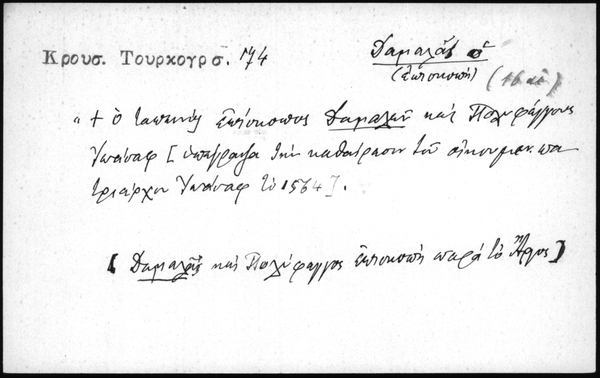 Κρουσ. Τουρκογρσ. 174 Δαμαλᾶς ὁ
(ἐπισκοπὴ) (16 αἰ)
" + ὁ ταπεινὸς ἐπίσκοπος Δαμαλῶν καὶ Πολυφάγγους
Ἰωάσαφ [ὑπέγραψα τὴν καθαίρεσιν τοῦ οἰκουμεν. πα
τριάρχου Ἰωάσαφ τὸ 1564].
[Δαμαλᾶς καὶ Πολύφαγγος ἐπισκοπὴ παρὰ τὸ Ἄργος]